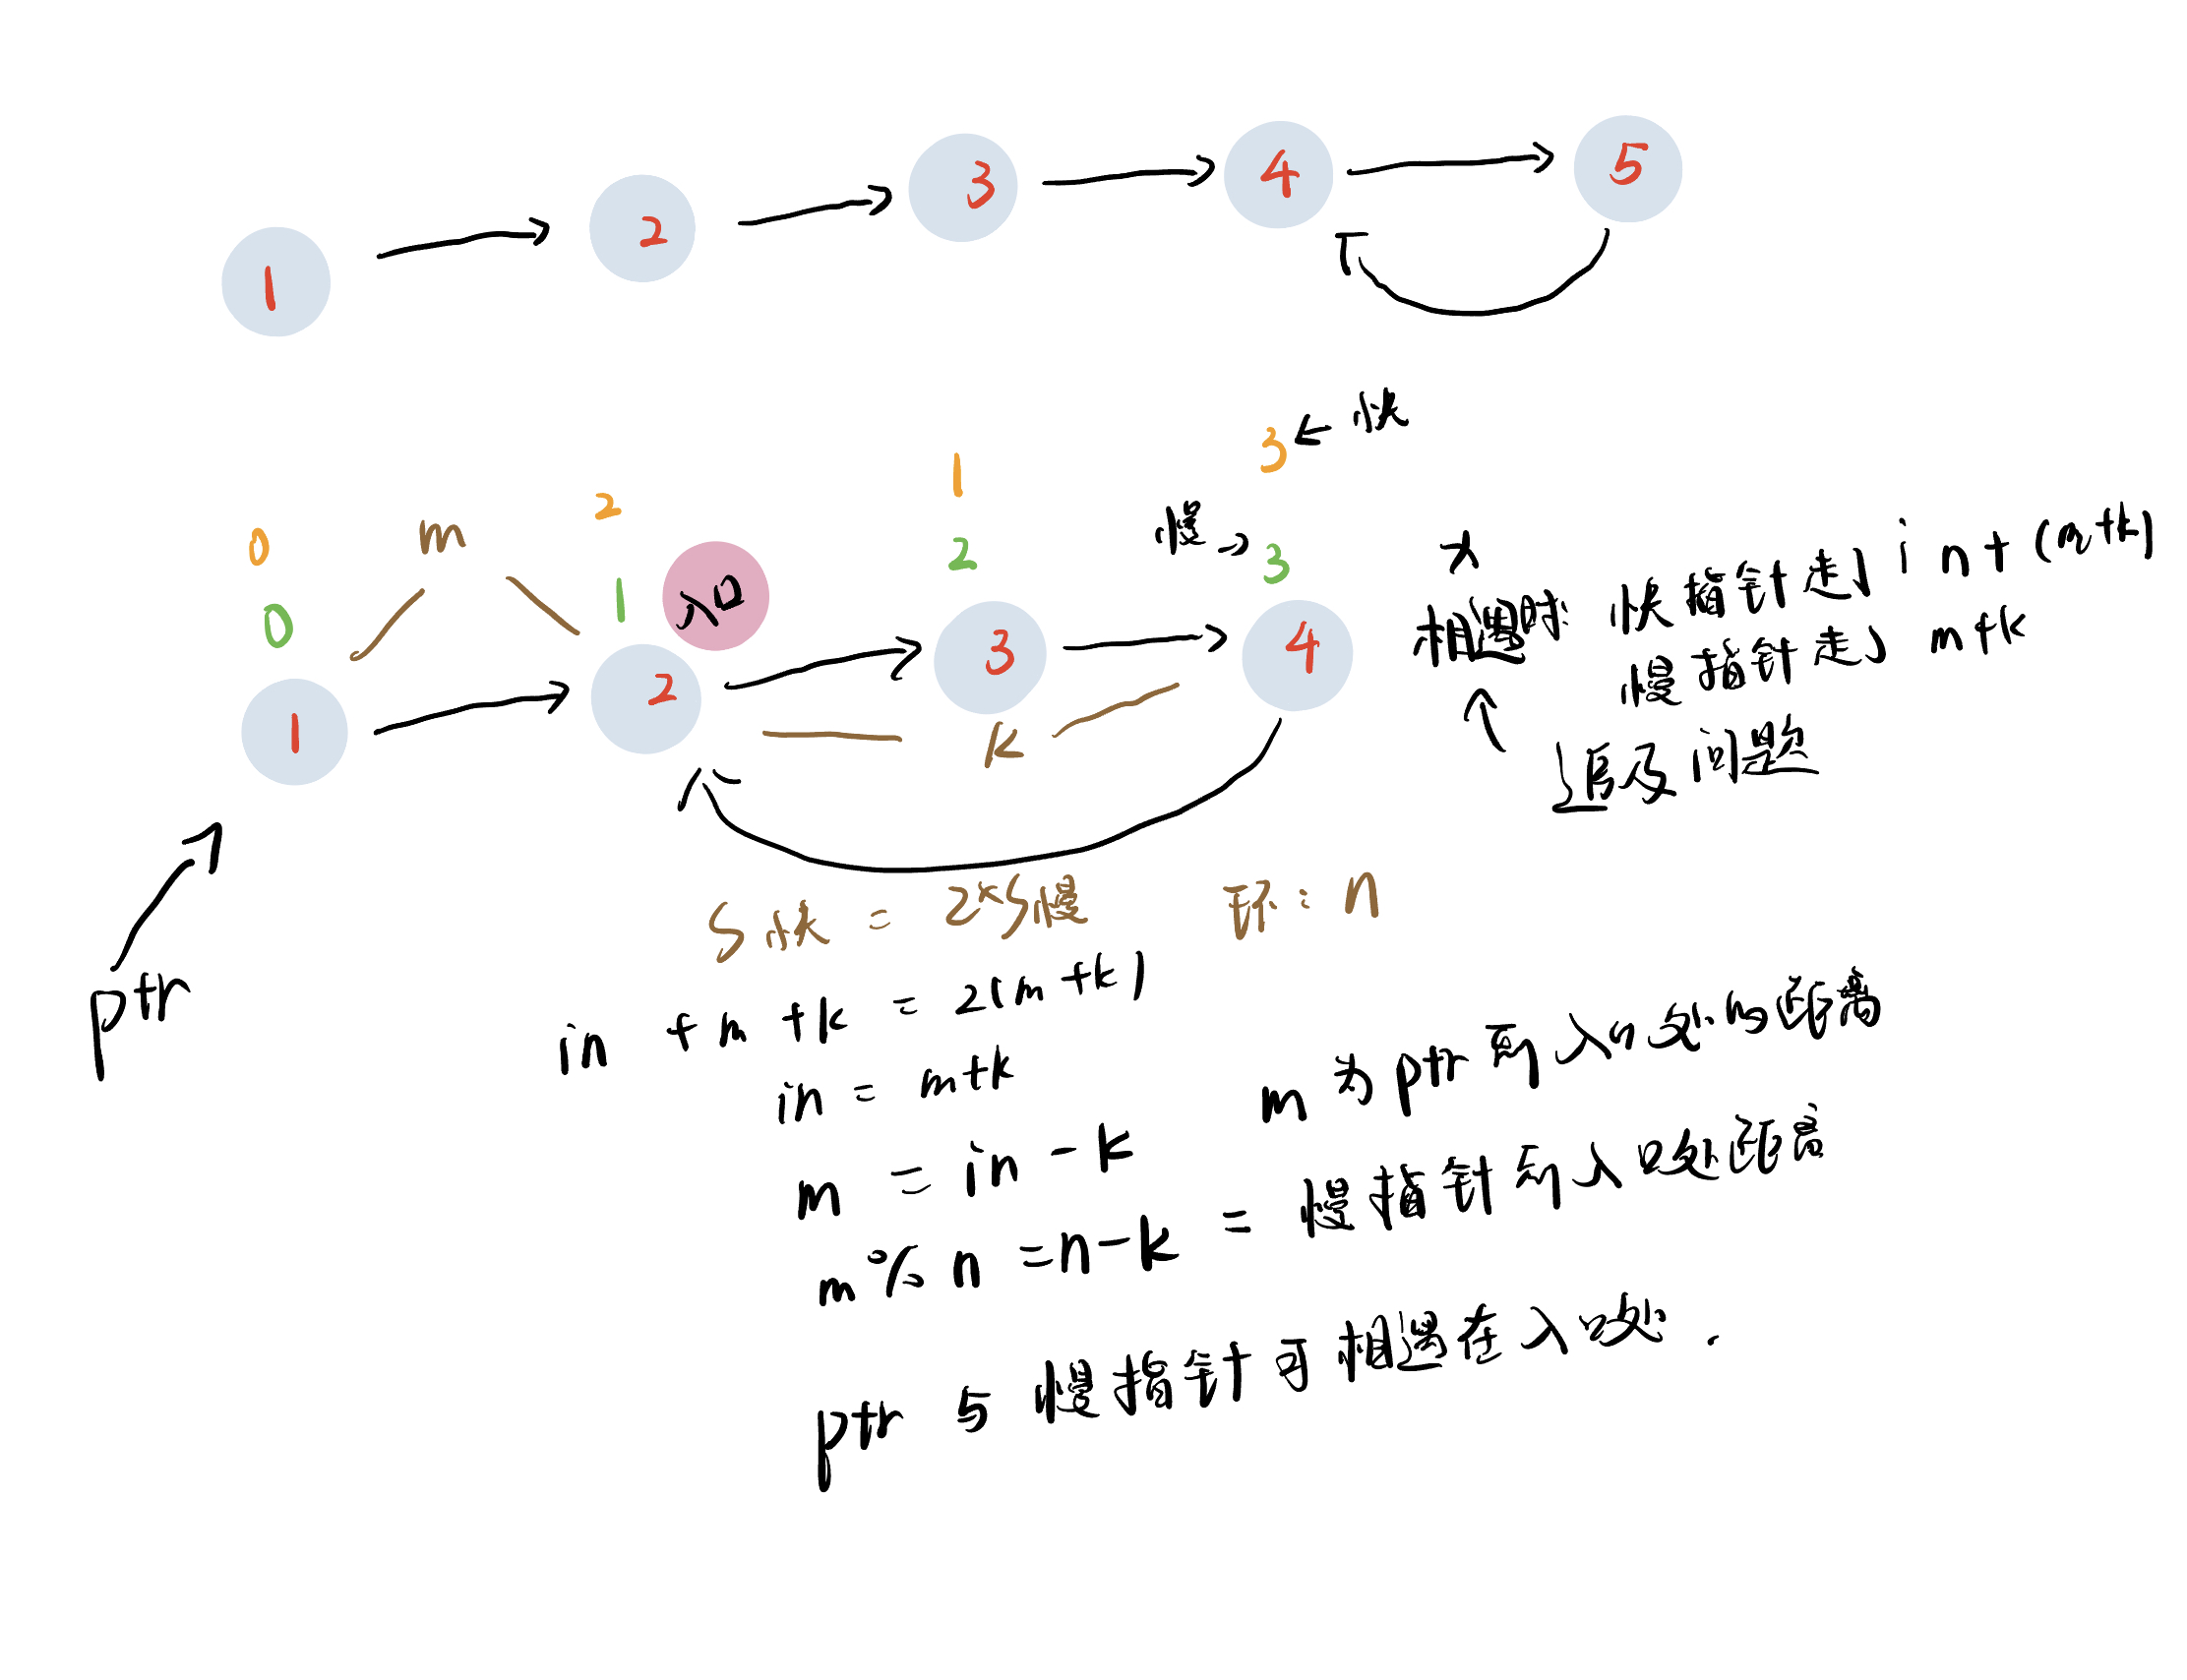 1 2 3 4 5
3 ← 快
0 m 2 1 慢 → 3
0 1 入口 2
1 2 3 4
k
相遇时: 快指针走了 in+(m+k)
慢指针走了 m+k
追及问题
ptr
S快 = 2*S慢 环: n
in + m + k = 2(m+k)
in = m+k
m = in - k m 为 ptr 到入口处的距离
m % n = n - k = 慢指针到入口处距离
ptr 与慢指针可相遇在入口处.